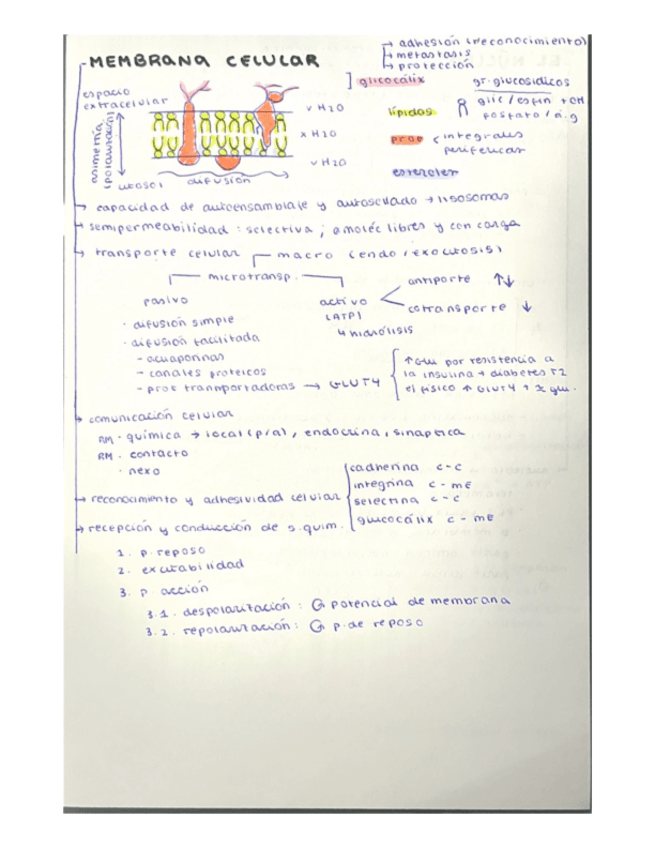 MEMBRANA CELULAR
adhesión (reconocimiento)
metastasis
protección
glicocálix
gr. glucosidicos
espacio
extracelular
√ H2O
lípidos
glic / esfin + OH
fosfato / a.g
asimetría
(polarización)
x H2O
prot
integrales
perifericas
√ H2O
citosol
difusión
esteroles
→ capacidad de autoensamblaje y autosellado → lisosomas
→ semipermeabilidad : selectiva ; ø moléc libres y con carga
→ transporte celular
macro (endo / exocitosis)
microtransp.
pasivo
activo
(ATP)
↳ hidrólisis
antiporte ↑↓
cotransporte ↓
· difusión simple
· difusión facilitada
- acuaporinas
- canales proteicos
- prot transportadoras → GLUT4
↑ Glu por resistencia a
la insulina → diabetes T2
el físico ↑ GLUT4
→ comunicación celular
RM · química → local (p/a), endocrina, sinaptica
RM · contacto
· nexo
→ reconocimiento y adhesividad celular
cadherina c - c
integrina c - mE
selectina c - c
glucocálix c - mE
→ recepción y conducción de s. quim.
1. p. reposo
2. excitabilidad
3. p acción
3.1. despolarización : potencial de membrana
3.2. repolarización : p. de reposo